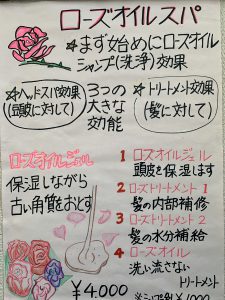 ローズオイルスパ
☆まず始めにローズオイル
シャンプ(洗浄)効果
☆ヘッドスパ効果
(頭皮に対して)
3つの
大きな
効能
☆トリートメント効果
(髪に対して)
ローズオイルジェル
保湿しながら
古い角質をおとす
1 ローズオイルジェル
頭皮を保湿します
2 ローズトリートメント1
髪の内部補修
3 ローズトリートメント2
髪の水分補給
4 ローズオイル
洗い流さない
トリートメント
¥4.000